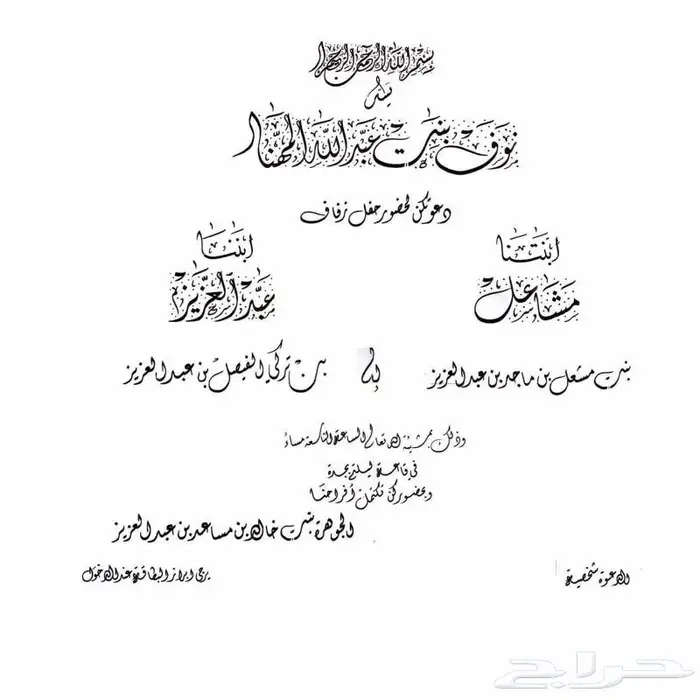 بسم الله الرحمن الرحيم
يسر
نوف بنت عبدالله المهنا
دعوتكن لحضور حفل زفاف
ابنتنا
ابننا
مشاعل
عبدالعزيز
بنت مشعل بن ماجد بن عبدالعزيز
إلى
بن تركي الفيصل بن عبدالعزيز
وذلك بمشيئة الله تعالى الساعة التاسعة مساءً
في قاعة ليلتي بجدة
وبحضوركن تكتمل أفراحنا
الجوهرة بنت خالد بن مساعد بن عبدالعزيز
الدعوة شخصية
يرجى ابراز البطاقة عند الدخول
حراج